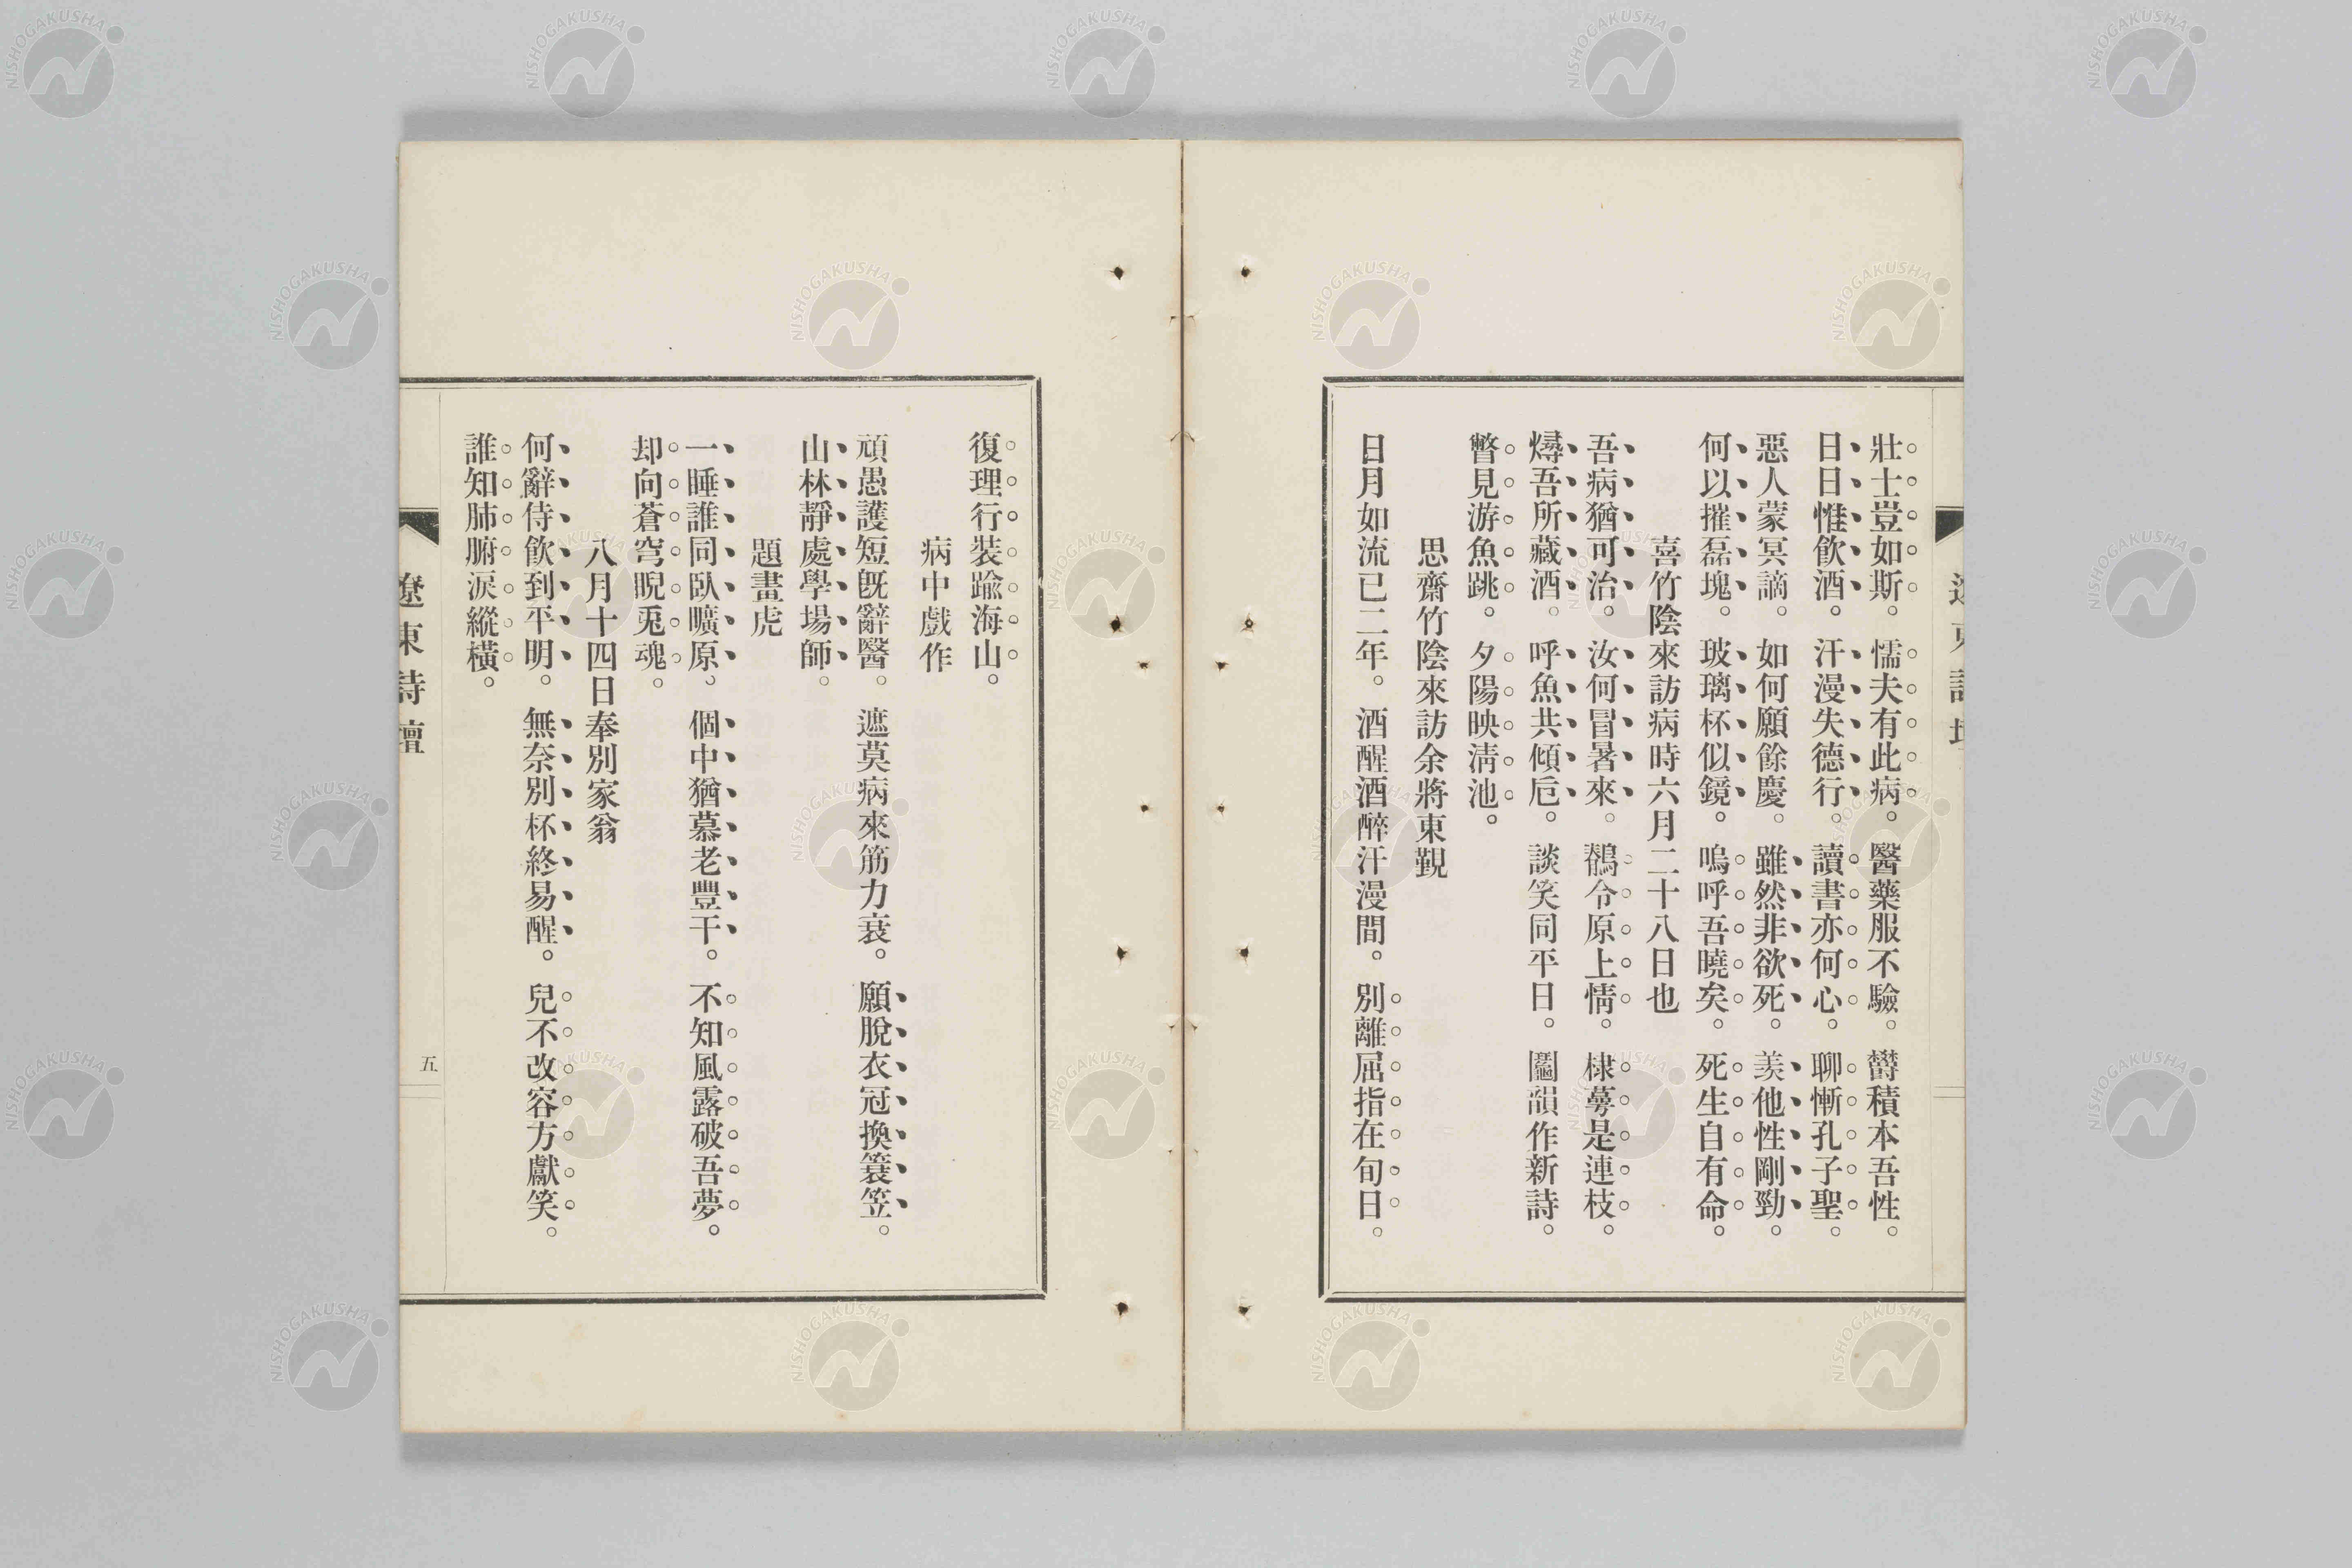 壯士豈如斯。懦夫有此病。醫藥服不驗。欝積本吾性。
日日惟飮酒。汗漫失德行。讀書亦何心。聊慚孔子聖。
惡人蒙冥謫。如何願餘慶。雖然非欲死。羨他性剛勁。
何以摧磊塊。玻璃杯似鏡。嗚呼吾曉矣。死生自有命。
喜竹陰來訪病時六月二十八日也
吾病猶可治。汝何冒暑來。鶺令原上情。棣萼是連枝。
燖吾所藏酒。呼魚共傾巵。談笑同平日。鬮韻作新詩。
瞥見游魚跳。夕陽映淸池。
思齋竹陰來訪余將東覲
日月如流已二年。酒醒酒醉汗漫間。別離屈指在旬日。
復理行裝踰海山。
病中戲作
頑愚護短旣辭醫。遮莫病來筋力衰。願脫衣冠換簑笠。
山林靜處學場師。
題畫虎
一睡誰同臥曠原。個中猶慕老豐干。不知風露破吾夢。
却向蒼穹睨兎魂。
八月十四日奉別家翁
何辭侍飮到平明。無奈別杯終易醒。兒不改容方獻笑。
誰知肺腑淚縱橫。
遼東詩壇
五
NISHOGAKUSHA